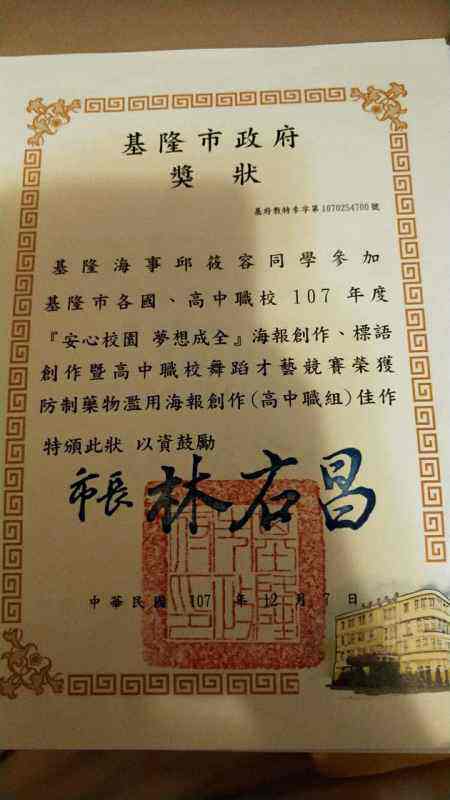 基隆市政府
獎狀
基府教特參字第1070254700號
基隆海事邱筱容同學參加
基隆市各國、高中職校 107 年度
『安心校園 夢想成全』海報創作、標語
創作暨高中職校舞蹈才藝競賽榮獲
防制藥物濫用海報創作(高中職組)佳作
特頒此狀 以資鼓勵
市長 林右昌
中華民國 107 年 12 月 7 日